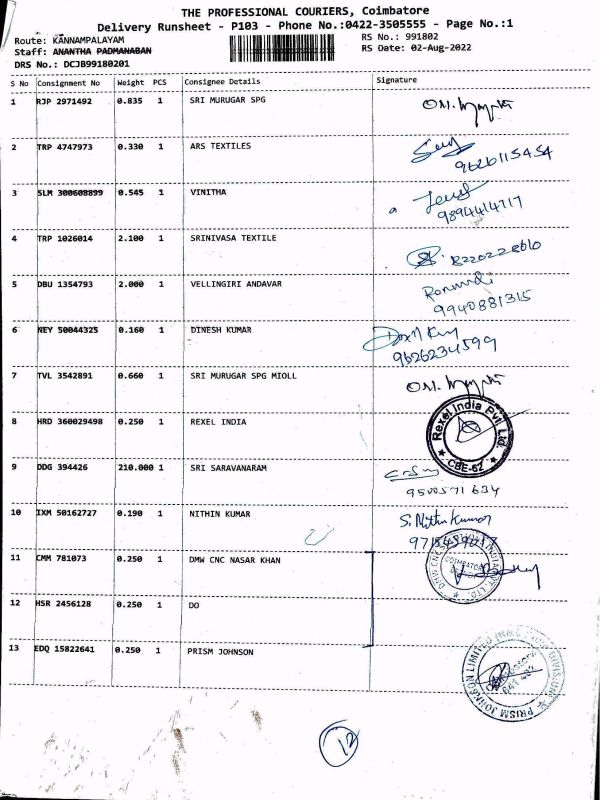 THE PROFESSIONAL COURIERS, Coimbatore
Delivery Runsheet - P103 - Phone No.:0422-3505555 - Page No.:1
Route: KANNAMPALAYAM
RS No.: 991802
Staff: ANANTHA PADMANABAN
RS Date: 02-Aug-2022
DRS No.: DCJB99180201
S No Consignment No Weight PCS Consignee Details Signature
1 RJP 2971492 0.835 1 SRI MURUGAR SPG
2 TRP 4747973 0.330 1 ARS TEXTILES
9626115454
3 SLM 300608899 0.545 1 VINITHA
9894414717
4 TRP 1026014 2.100 1 SRINIVASA TEXTILE
5 DBU 1354793 2.000 1 VELLINGIRI ANDAVAR
9940881315
6 NEY 50044325 0.160 1 DINESH KUMAR
9626234599
7 TVL 3542891 0.660 1 SRI MURUGAR SPG MIOLL
8 HRD 360029498 0.250 1 REXEL INDIA
Rexel India Pvt Ltd.
CBE-62
9 DDG 394426 210.000 1 SRI SARAVANARAM
9500571634
10 IXM 50162727 0.190 1 NITHIN KUMAR
S. Nithin Kumar
11 CMM 781073 0.250 1 DMW CNC NASAR KHAN
COIMBATORE
12 HSR 2456128 0.250 1 DO
13 EDQ 15822641 0.250 1 PRISM JOHNSON
PRISM JOHNSON LIMITED
12